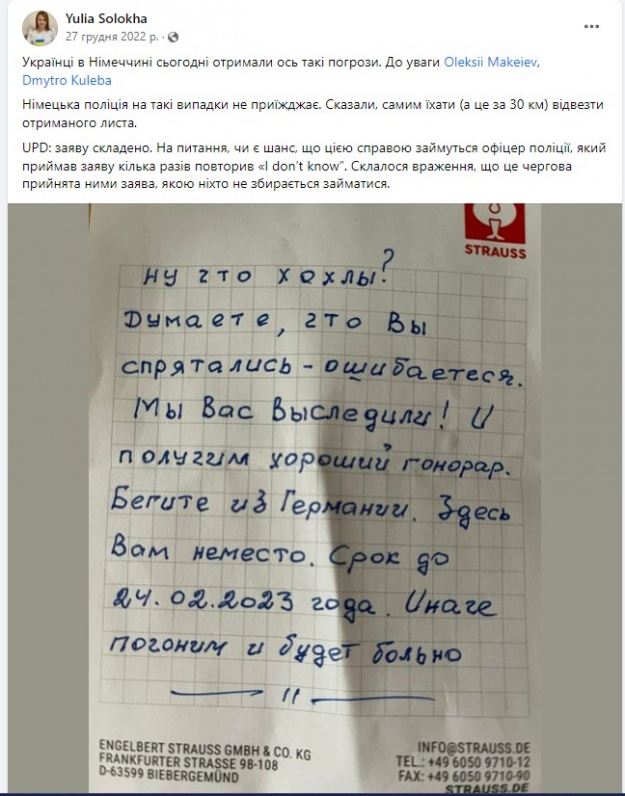 Yulia Solokha
27 грудня 2022 р. ·
Українці в Німеччині сьогодні отримали ось такі погрози. До уваги Oleksii Makeiev,
Dmytro Kuleba
Німецька поліція на такі випадки не приїжджає. Сказали, самим їхати (а це за 30 км) відвезти
отриманого листа.
UPD: заяву складено. На питання, чи є шанс, що цією справою займуться офіцер поліції, який
приймав заяву кілька разів повторив «I don't know". Склалося враження, що це чергова
прийнята ними заява, якою ніхто не збирається займатися.
STRAUSS
ну что хохлы?
Думаете, что Вы
спрятались - ошибаетеся.
Мы Вас Выследили! И
получим хороший гонорар.
Бегите из Германии. Здесь
Вам неместо. Срок до
24.02.2023 года. Иначе
погоним и будет больно
ENGELBERT STRAUSS GMBH & CO. KG
FRANKFURTER STRASSE 98-108
D-63599 BIEBERGEMÜND
INFO@STRAUSS.DE
TEL.: +49 6050 9710-12
FAX: +49 6050 9710-90
STRAUSS.DE